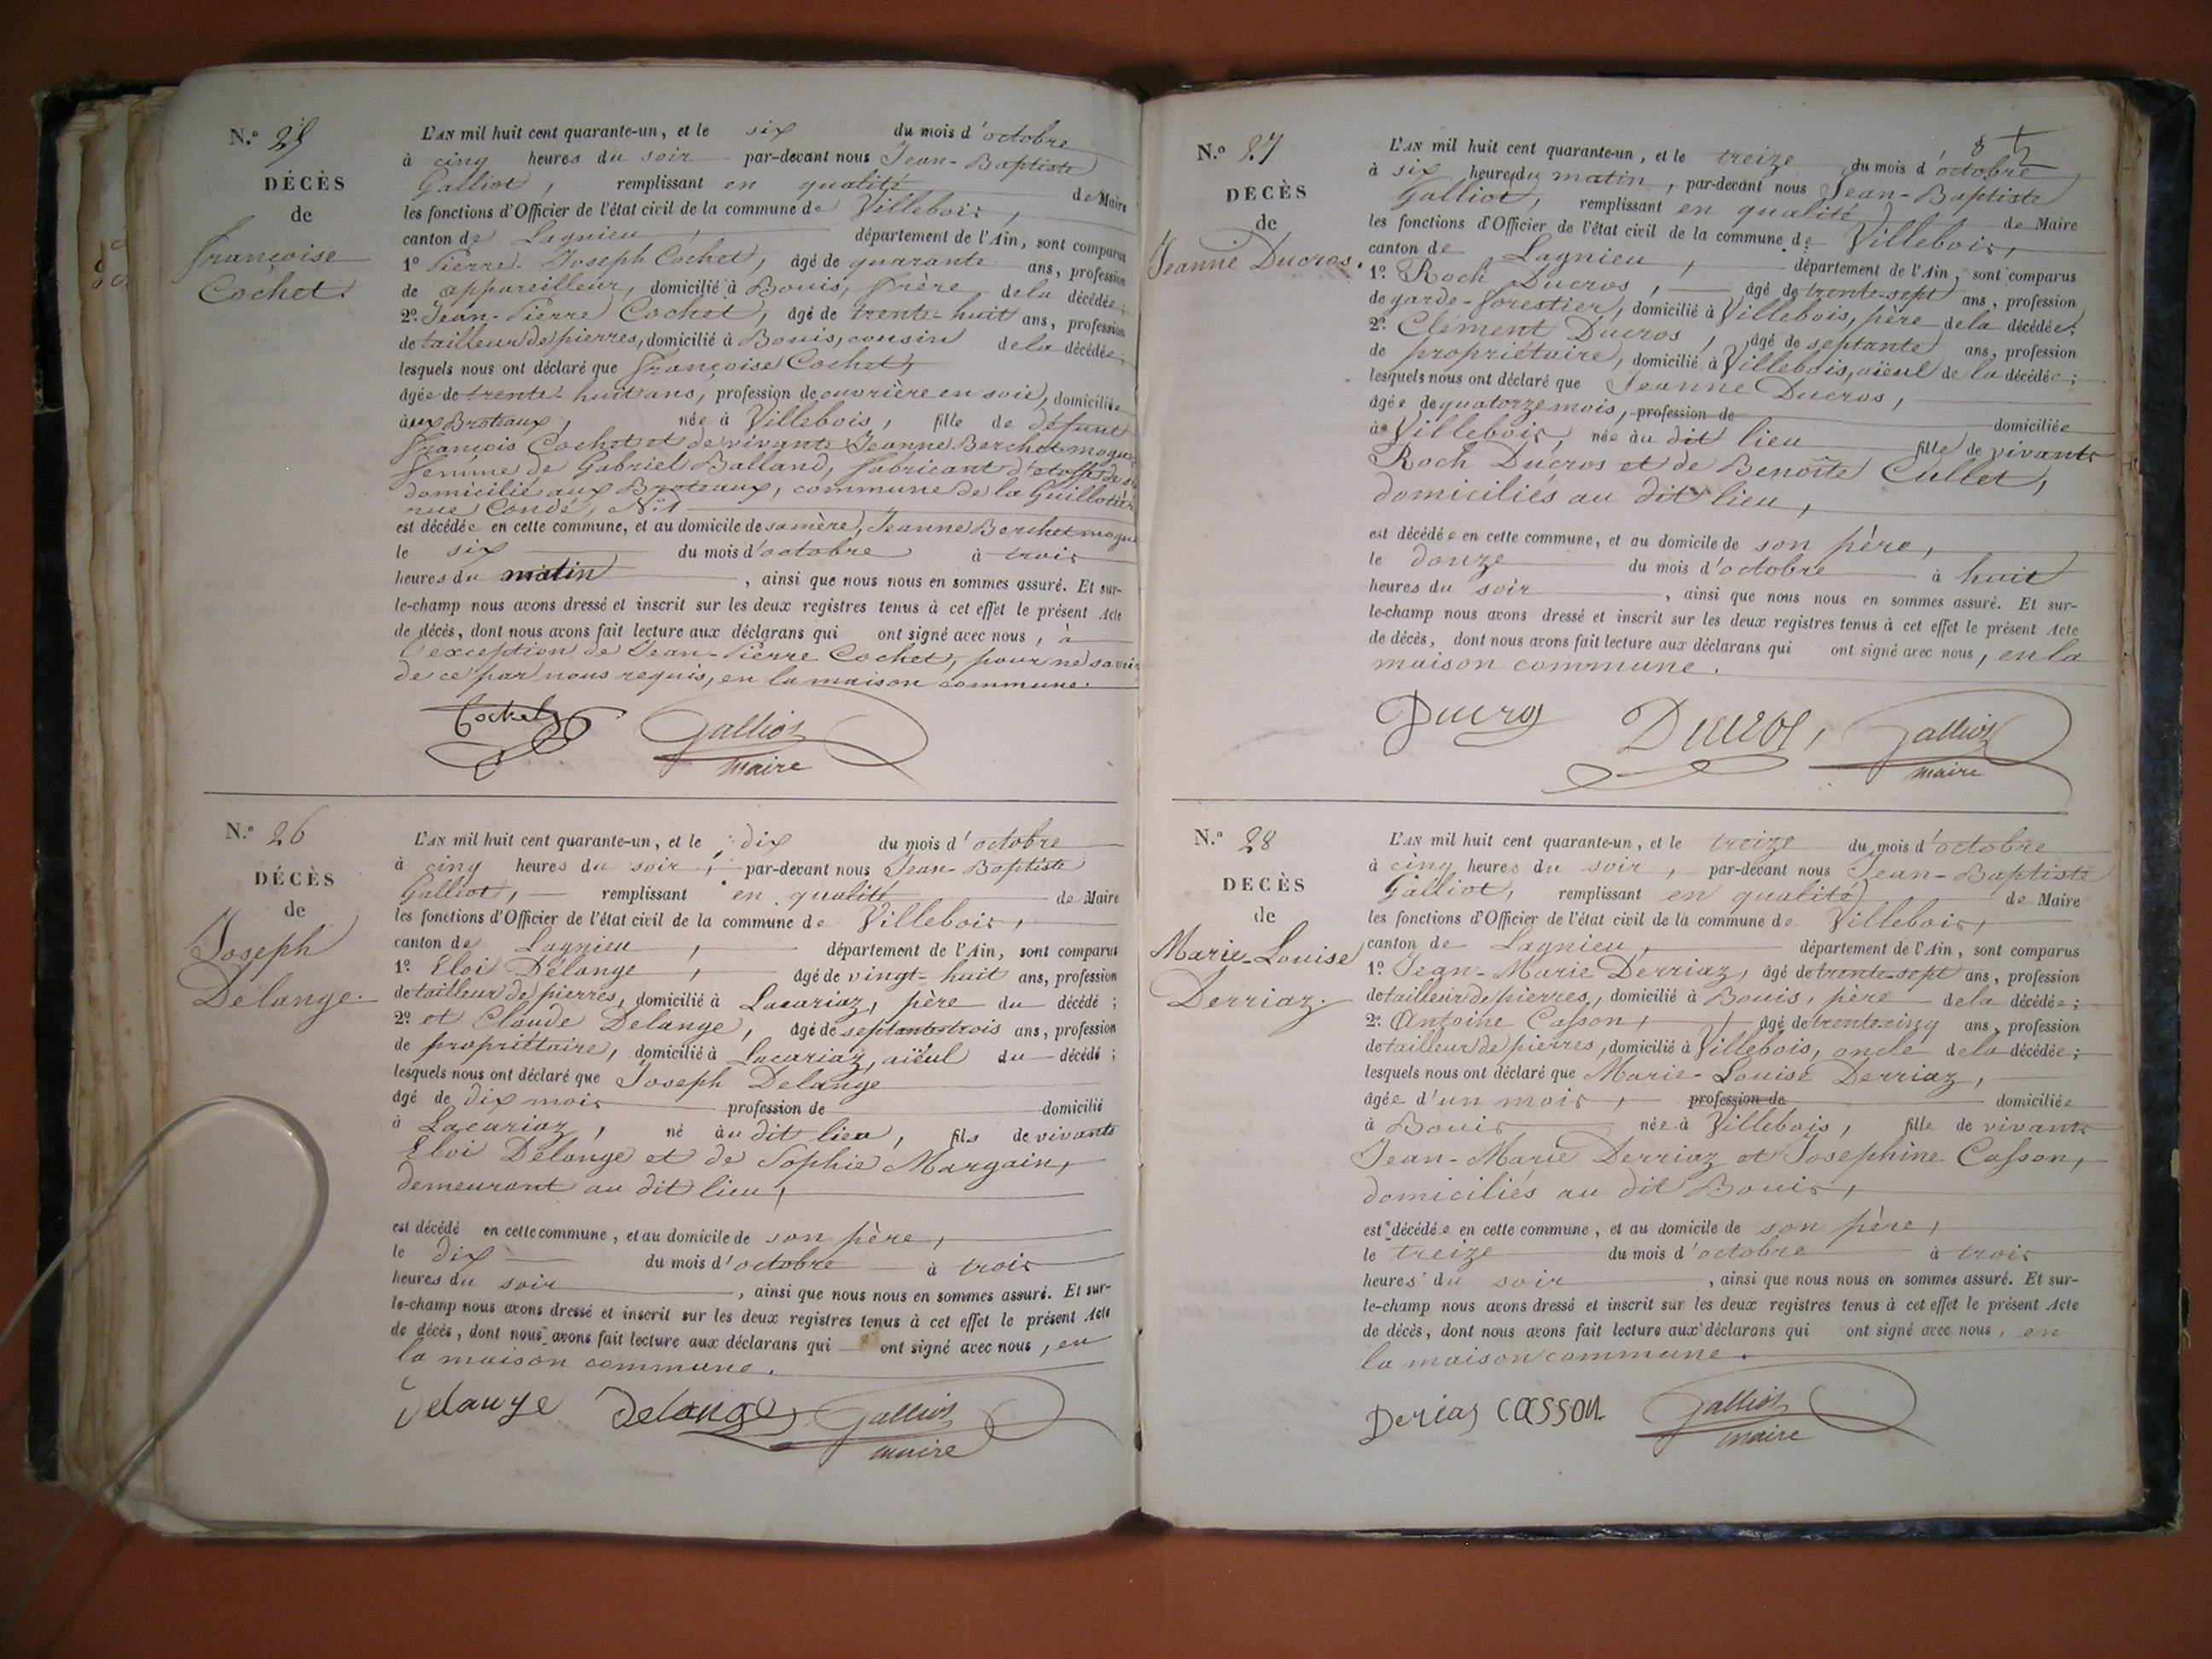 N.o 25
DÉCÈS
de
françoise
Cochet.
L'AN mil huit cent quarante-un, et le six du mois d'octobre
à cinq heures du soir par-devant nous Jean-Baptiste
Galliot, remplissant en qualité de Maire
les fonctions d'Officier de l'état civil de la commune de Villebois,
canton de Lagnieu, département de l'Ain, sont comparus
1o Pierre-Joseph Cochet, âgé de quarante ans, profession
de appareilleur, domicilié à Bouis, frère de la décédée;
2o. Jean-Pierre Cochet, âgé de trente-huit ans, profession
de tailleur de pierres, domicilié à Bouis, cousin de la décédée,
lesquels nous ont déclaré que françoise Cochet,
âgée de trente-huit ans, profession de ouvrière en soie, domiciliée
aux Broteaux, née à Villebois, fille de défunt
françois Cochet et de vivante Jeanne Berchet
femme de Gabriel Balland, fabricant d'etoffe de
domicilié aux Broteaux, commune de la Guillotière
rue Condé, No 1
est décédée en cette commune, et au domicile de sa mère, Jeanne Berchet
le six du mois d'octobre à trois
heures du matin, ainsi que nous nous en sommes assuré. Et sur-
le-champ nous avons dressé et inscrit sur les deux registres tenus à cet effet le présent Acte
de décès, dont nous avons fait lecture aux déclarans qui ont signé avec nous, à
l'exception de Jean-Pierre Cochet, pour ne savoir,
de ce par nous requis, en la maison commune.
Cochet Galliot
maire
N.o 26
DÉCÈS
de
Joseph
Delange.
L'AN mil huit cent quarante-un, et le dix du mois d'octobre
à cinq heures du soir, par-devant nous Jean-Baptiste
Galliot, remplissant en qualité de Maire
les fonctions d'Officier de l'état civil de la commune de Villebois,
canton de Lagnieu, département de l'Ain, sont comparus
1o. Eloi Delange, âgé de vingt-huit ans, profession
de tailleur de pierres, domicilié à Lacariaz, père du décédé;
2o. et Claude Delange, âgé de septante-trois ans, profession
de propriétaire, domicilié à Lacariaz, aïeul du décédé;
lesquels nous ont déclaré que Joseph Delange
âgé de dix mois profession de domicilié
à Lacariaz, né au dit lieu, fils de vivants
Eloi Delange et de Sophie Margain,
demeurant au dit lieu,
est décédé en cette commune, et au domicile de son père,
le dix du mois d'octobre à trois
heures du soir, ainsi que nous nous en sommes assuré. Et sur-
le-champ nous avons dressé et inscrit sur les deux registres tenus à cet effet le présent Acte
de décès, dont nous avons fait lecture aux déclarans qui ont signé avec nous, en
la maison commune.
Delange Delange Galliot
maire
N.o 27
DECÈS
de
Jeanne Ducros.
L'AN mil huit cent quarante-un, et le treize du mois d'octobre
à six heures du matin, par-devant nous Jean-Baptiste
Galliot, remplissant en qualité de Maire
les fonctions d'Officier de l'état civil de la commune de Villebois,
canton de Lagnieu, département de l'Ain, sont comparus
1o. Roch Ducros, âgé de trente-sept ans, profession
de garde-forestier, domicilié à Villebois, père de la décédée;
2o. Clément Ducros, âgé de septante ans, profession
de propriétaire, domicilié à Villebois, aïeul de la décédée;
lesquels nous ont déclaré que Jeanne Ducros,
âgée de quatorze mois, profession de domiciliée
à Villebois, née au dit lieu fille de vivants
Roch Ducros et de Benoîte Cullet,
domiciliés au dit lieu,
est décédée en cette commune, et au domicile de son père,
le douze du mois d'octobre à huit
heures du soir, ainsi que nous nous en sommes assuré. Et sur-
le-champ nous avons dressé et inscrit sur les deux registres tenus à cet effet le présent Acte
de décès, dont nous avons fait lecture aux déclarans qui ont signé avec nous, en la
maison commune.
Ducros Ducros, Galliot
maire
N.o 28
DECÈS
de
Marie-Louise
Derriaz.
L'AN mil huit cent quarante-un, et le treize du mois d'octobre
à cinq heures du soir, par-devant nous Jean-Baptiste
Galliot, remplissant en qualité de Maire
les fonctions d'Officier de l'état civil de la commune de Villebois,
canton de Lagnieu, département de l'Ain, sont comparus
1o. Jean-Marie Derriaz, âgé de trente-sept ans, profession
de tailleur de pierres, domicilié à Bouis, père de la décédée;
2o. Antoine Casson, âgé de trente-cinq ans, profession
de tailleur de pierres, domicilié à Villebois, oncle de la décédée;
lesquels nous ont déclaré que Marie-Louise Derriaz,
âgée d'un mois, profession de domiciliée
à Bouis née à Villebois, fille de vivants
Jean-Marie Derriaz et Josephine Casson,
domiciliés au dit Bouis,
est décédée en cette commune, et au domicile de son père,
le treize du mois d'octobre à trois
heures du soir, ainsi que nous nous en sommes assuré. Et sur-
le-champ nous avons dressé et inscrit sur les deux registres tenus à cet effet le présent Acte
de décès, dont nous avons fait lecture aux déclarans qui ont signé avec nous, en
la maison commune.
Derias CASSON Galliot
maire